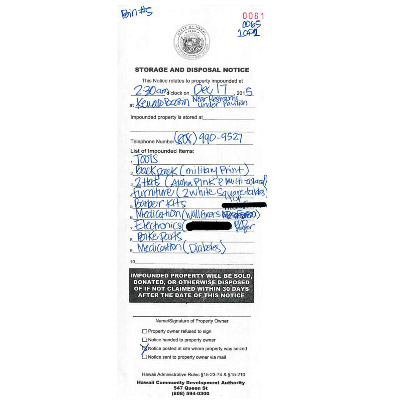 Bin #5
0061
0065
1 of 1
STORAGE AND DISPOSAL NOTICE
This Notice relates to property impounded at
2:30am o'clock on Dec 17, 2015
at Kewalo Basin Near Restrooms under Pavilion
Impounded property is stored at
Telephone Number (808) 990-9527
List of Impounded Items:
Tools
Backpack (military Print)
2 Hats (Aloha Pink & Multi-
Furniture (2 white Square tables)
Barber Kits
Medication (Wallgreens
Electronics
Bike Parts
Medication (Diabetes)
10
IMPOUNDED PROPERTY WILL BE SOLD,
DONATED, OR OTHERWISE DISPOSED
OF IF NOT CLAIMED WITHIN 30 DAYS
AFTER THE DATE OF THIS NOTICE
Name/Signature of Property Owner
Property owner refused to sign
Notice handed to property owner
Notice posted at site where property was seized
Notice sent to property owner via mail
Hawaii Administrative Rules §15-23-74 & §15-210
Hawaii Community Development Authority
547 Queen St
(808) 594-0300